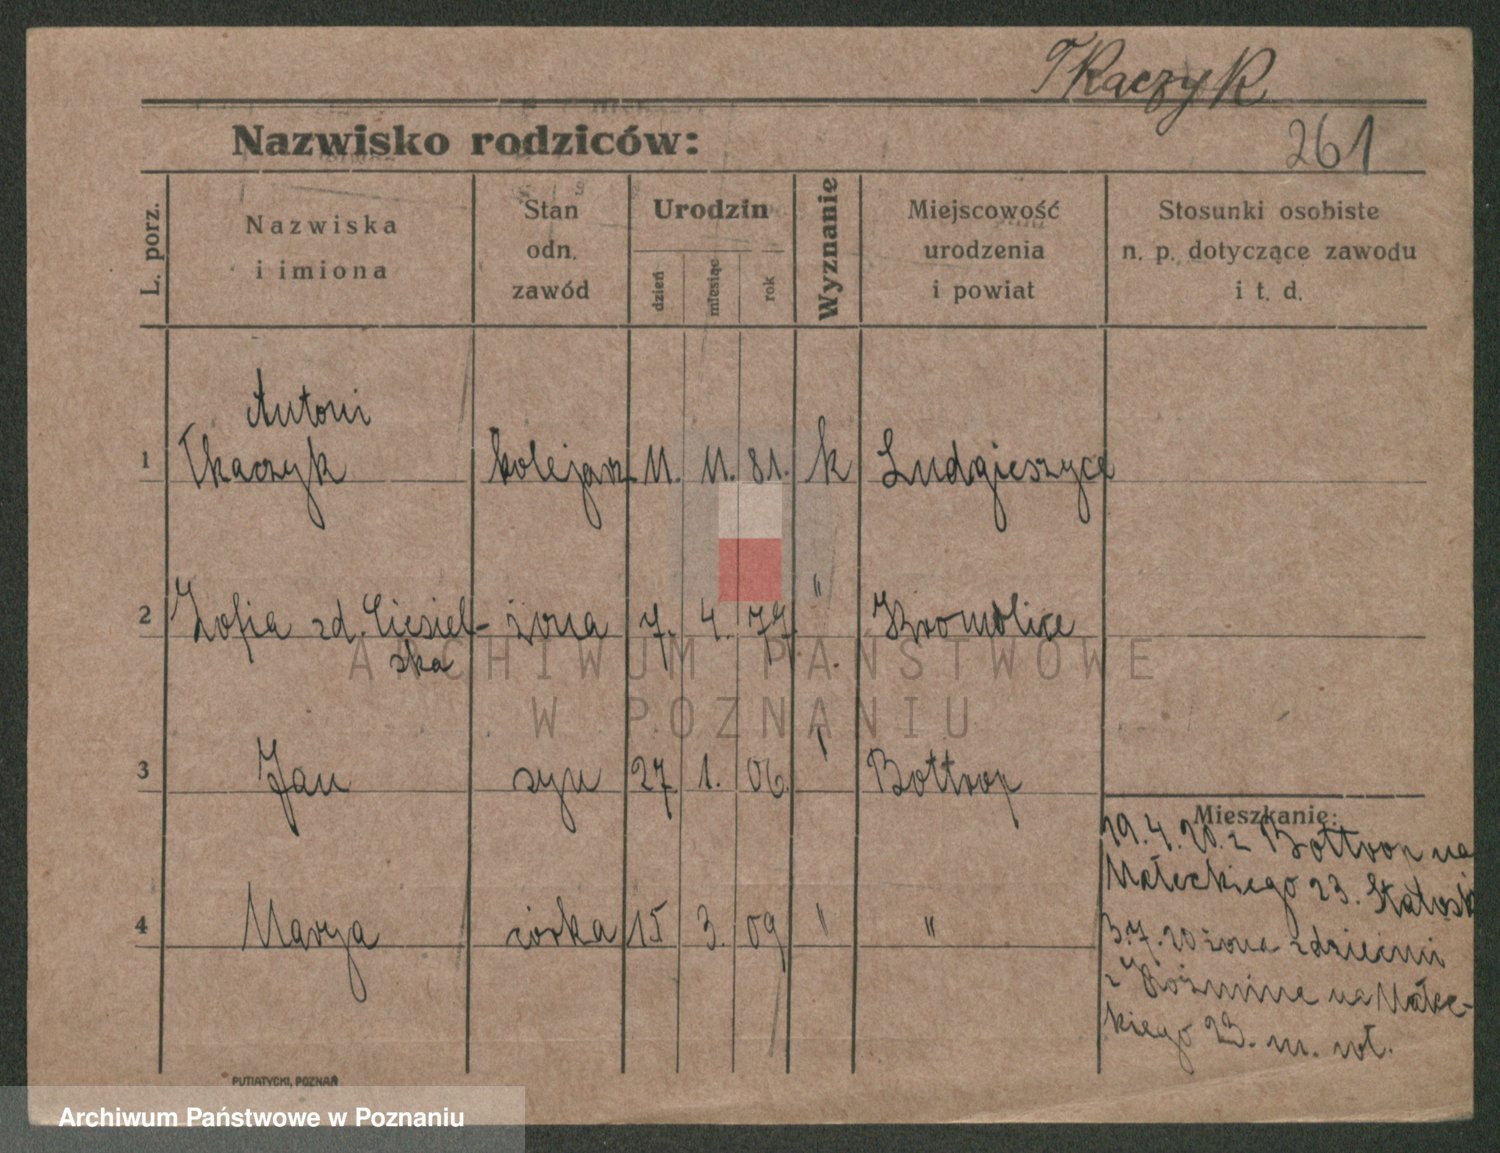 Tkaczyk
Nazwisko rodziców:
261
L. porz.
Nazwiska
i imiona
Stan
odn.
zawód
Urodzin
dzień
miesiąc
rok
Wyznanie
Miejscowość
urodzenia
i powiat
Stosunki osobiste
n. p. dotyczące zawodu
i t. d.
Antoni
1 Tkaczyk kolejarz 11. 11. 81. k Ludgieszyce
2 Zofia zd. Ciesiel- żona 7. 4. 77. " Kromolice
ska
3 Jan syn 27. 1. 06. Bottrop
4 Marya córka 15 3. 09 "
Mieszkanie:
29.4.20. z Bottrop na
Małeckiego 23.
3.7.20 żona z dziećmi
z Koźmina na Małec-
kiego 23. m. wł.
PUTIATYCKI, POZNAŃ
ARCHIWUM PAŃSTWOWE
W POZNANIU
Archiwum Państwowe w Poznaniu